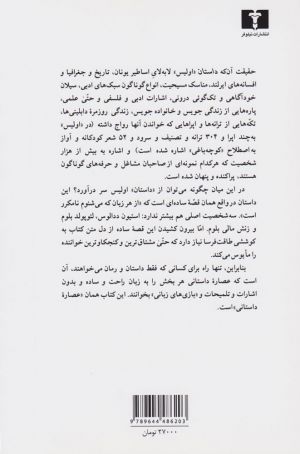 انتشارات نیلوفر
حقیقت آن‌که داستان «اولیس» لابه‌لای اساطیر یونان، تاریخ و جغرافیا و
افسانه‌های ایرلند، مناسک مسیحیت، انواع گوناگون سبک‌های ادبی، سیلان
خودآگاهی و تک‌گوئی درونی، اشارات ادبی و فلسفی و حتّیٰ علمی،
پاره‌هایی از زندگی جویس و خانواده جویس، زندگی روزمرهٔ دابلینی‌ها،
تکه‌هایی از ترانه‌ها و اپراهایی که خواندن آنها رواج داشته (در «اولیس»
به‌چند اپرا و ۳۰۴ ترانه و تصنیف و سرود و ۵۲ شعر کودکانه و آواز
به‌اصطلاح «کوچه‌باغی» اشاره شده است) و اشاره به بیش از هزار
شخصیت که هرکدام نمونه‌ای از صاحبان مشاغل و حرفه‌های گوناگون
هستند، پراکنده و پنهان شده است.
در این میان چگونه می‌توان از «داستان» اولیس سر درآورد؟ این
داستان در واقع همان قصّهٔ ساده‌ای است که «از هر زبان که می‌شنوم نامکرر
است». سه شخصیت اصلی هم بیشتر ندارد: استیون ددالوس، لئوپولد بلوم
و زنش مالی بلوم. امّا بیرون کشیدن این قصهٔ ساده از دل متن کتاب به
کوششی طاقت‌فرسا نیاز دارد که حتّیٰ مشتاق‌ترین و کنجکاوترین خواننده
را مأیوس می‌کند.
بنابراین، تنها راه برای کسانی که فقط داستان و رمان می‌خواهند، آن
است که عصارهٔ داستانی هر بخش را به زبان راحت و ساده و بدون
اشارات و تلمیحات و «بازی‌های زبانی» بخوانند. این کتاب همان «عصارهٔ
داستانی» است.
9 789644 486203
۲۷۰۰۰ تومان